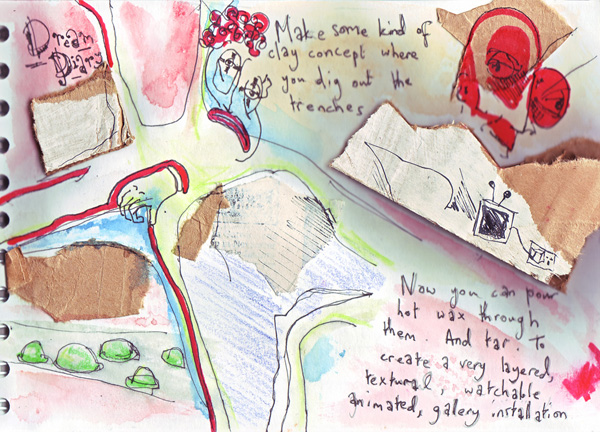 Dream
Diary
Make some kind of
clay concept where
you dig out the
trenches
Now you can pour
hot wax through
them. And tar. To
create a very layered,
textural, watchable
animated, gallery installation